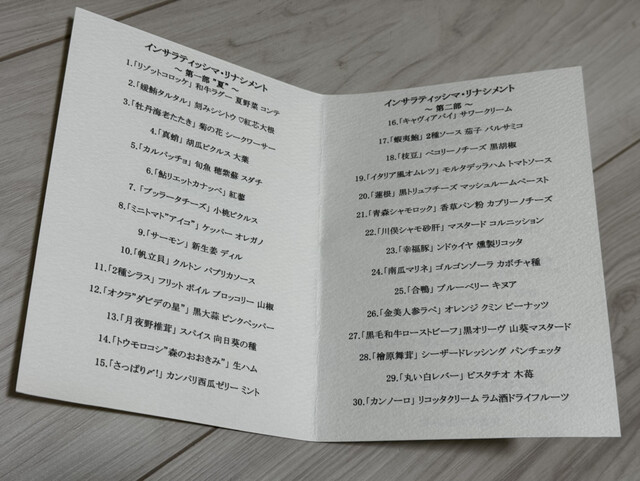 インサラティッシマ・リナシメント
～ 第一部 "夏" ～
1.「リゾットコロッケ」 和牛ラグー 夏野菜 コンテ
2.「媛鮪タルタル」 刻みシシトウ ♡紅芯大根
3.「牡丹海老たたき」 菊の花 シークワーサー
4.「真蛸」 胡瓜ピクルス 大葉
5.「カルパッチョ」 旬魚 穂紫蘇 スダチ
6.「鮎リエットカナッペ」 紅蓼
7.「ブッラータチーズ」 小桃ピクルス
8.「ミニトマト"アイコ"」 ケッパー オレガノ
9.「サーモン」 新生姜 ディル
10.「帆立貝」 クルトン パプリカソース
11.「2種シラス」 フリット ボイル ブロッコリー 山椒
12.「オクラ"ダビデの星"」 黒大蒜 ピンクペッパー
13.「月夜野椎茸」 スパイス 向日葵の種
14.「トウモロコシ"森のおおきみ"」 生ハム
15.「さっぱり〆!」 カンパリ西瓜ゼリー ミント
インサラティッシマ・リナシメント
～ 第二部 ～
16.「キャヴィアパイ」 サワークリーム
17.「蝦夷鮑」 2種ソース 茄子 バルサミコ
18.「枝豆」 ペコリーノチーズ 黒胡椒
19.「イタリア風オムレツ」 モルタデッラハム トマトソース
20.「蓮根」 黒トリュフチーズ マッシュルームペースト
21.「青森シャモロック」 香草パン粉 カプリーノチーズ
22.「川俣シャモ砂肝」 マスタード コルニッション
23.「幸福豚」 ンドゥイヤ 燻製リコッタ
24.「南瓜マリネ」 ゴルゴンゾーラ カボチャ種
25.「合鴨」 ブルーベリー キヌア
26.「金美人参ラペ」 オレンジ クミン ピーナッツ
27.「黒毛和牛ローストビーフ」 黒オリーヴ 山葵マスタード
28.「檜原舞茸」 シーザードレッシング パンチェッタ
29.「丸い白レバー」 ピスタチオ 木苺
30.「カンノーロ」 リコッタクリーム ラム酒ドライフルーツ